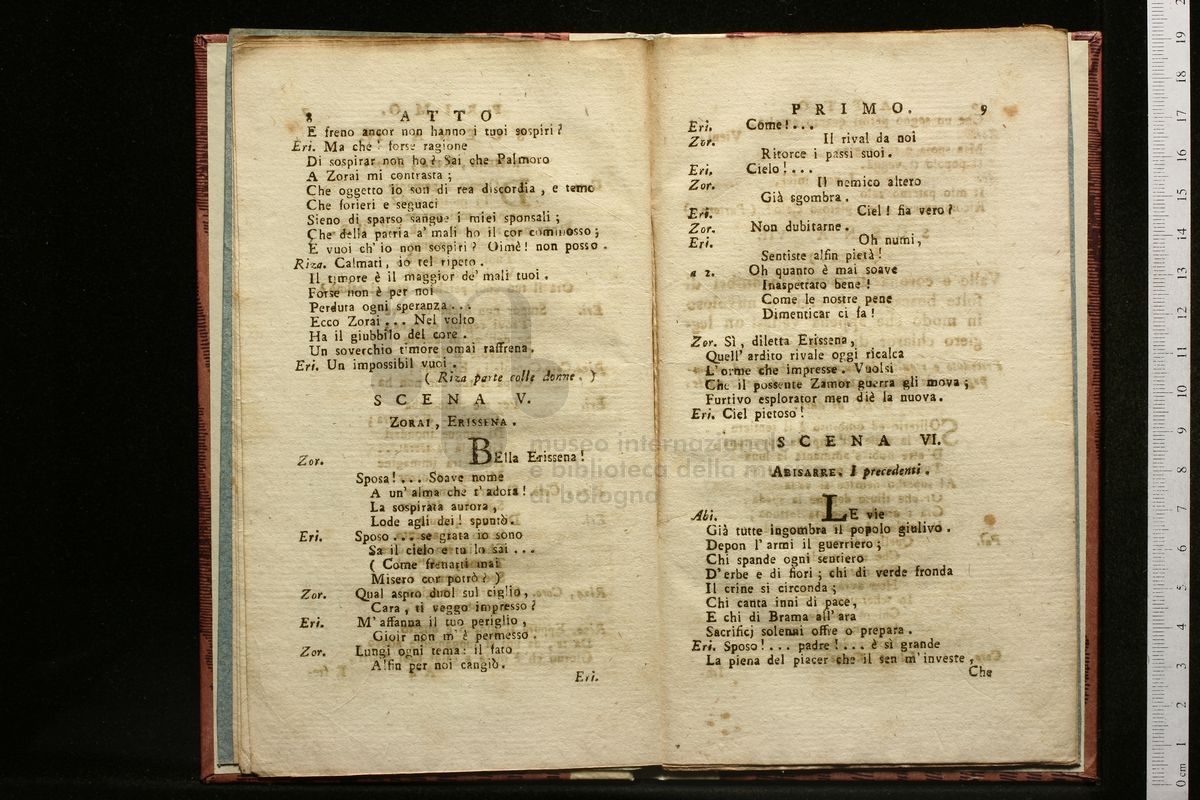 8 ATTO
E freno ancor non hanno i tuoi sospiri?
Eri. Ma che! forse ragione
Di sospirar non ho? Sai che Palmoro
A Zorai mi contrasta;
Che oggetto io son di rea discordia, e temo
Che forieri e seguaci
Sieno di sparso sangue i miei sponsali;
Che della patria a' mali ho il cor commosso;
E vuoi ch' io non sospiri? Oimè! non posso.
Riza. Calmati, io tel ripeto.
Il timore è il maggior de' mali tuoi.
Forse non è per noi
Perduta ogni speranza...
Ecco Zorai... Nel volto
Ha il giubbilo del core.
Un soverchio timore omai raffrena.
Eri. Un impossibil vuoi.
(Riza parte colle donne.)
SCENA V.
ZORAI, ERISSENA.
Zor. BElla Erissena!
Sposa!... Soave nome
A un' alma che t' adora!
La sospirata aurora,
Lode agli dei! spuntò.
Eri. Sposo... se grata io sono
Sa il cielo e tu lo sai...
(Come frenarti mai
Misero cor potrò?)
Zor. Qual aspro duol sul ciglio,
Cara, ti veggo impresso?
Eri. M' affanna il tuo periglio,
Gioir non m' è permesso.
Zor. Lungi ogni tema: il fato
Alfin per noi cangiò.
Eri.
PRIMO. 9
Eri. Come!...
Zor. Il rival da noi
Ritorce i passi suoi.
Eri. Cielo!...
Zor. Il nemico altero
Già sgombra.
Eri. Ciel! fia vero?
Zor. Non dubitarne.
Eri. Oh numi,
Sentiste alfin pietà!
a 2. Oh quanto è mai soave
Inaspettato bene!
Come le nostre pene
Dimenticar ci fa!
Zor. Sì, diletta Erissena,
Quell' ardito rivale oggi ricalca
L' orme che impresse. Vuolsi
Che il possente Zamor guerra gli mova;
Furtivo esplorator men diè la nuova.
Eri. Ciel pietoso!
SCENA VI.
ABISARRE, I precedenti.
Abi. LE vie
Già tutte ingombra il popolo giulivo.
Depon l' armi il guerriero;
Chi spande ogni sentiero
D' erbe e di fiori; chi di verde fronda
Il crine si circonda;
Chi canta inni di pace,
E chi di Brama all' ara
Sacrificj solenni offre o prepara.
Eri. Sposo!... padre!... è sì grande
La piena del piacer che il sen m' investe,
Che
museo internazionale
e biblioteca della musica
di bologna